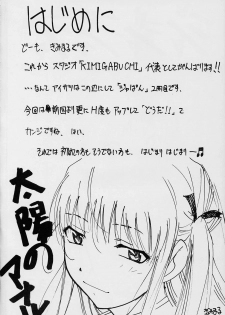 はじめに
どーも、きみまるです。
これから スタジオ「KIMIGABUCHI」代表としてがんばります!!
…なんて アイサツはこの辺にして「じゃぱん」2冊目です。
今回は前回より更に H度も アップして「どうだ!!」て
カンジですね、はい。
それでは 初めての方も そうでない方も、はじまり はじまりー♫
太陽の
きみまる